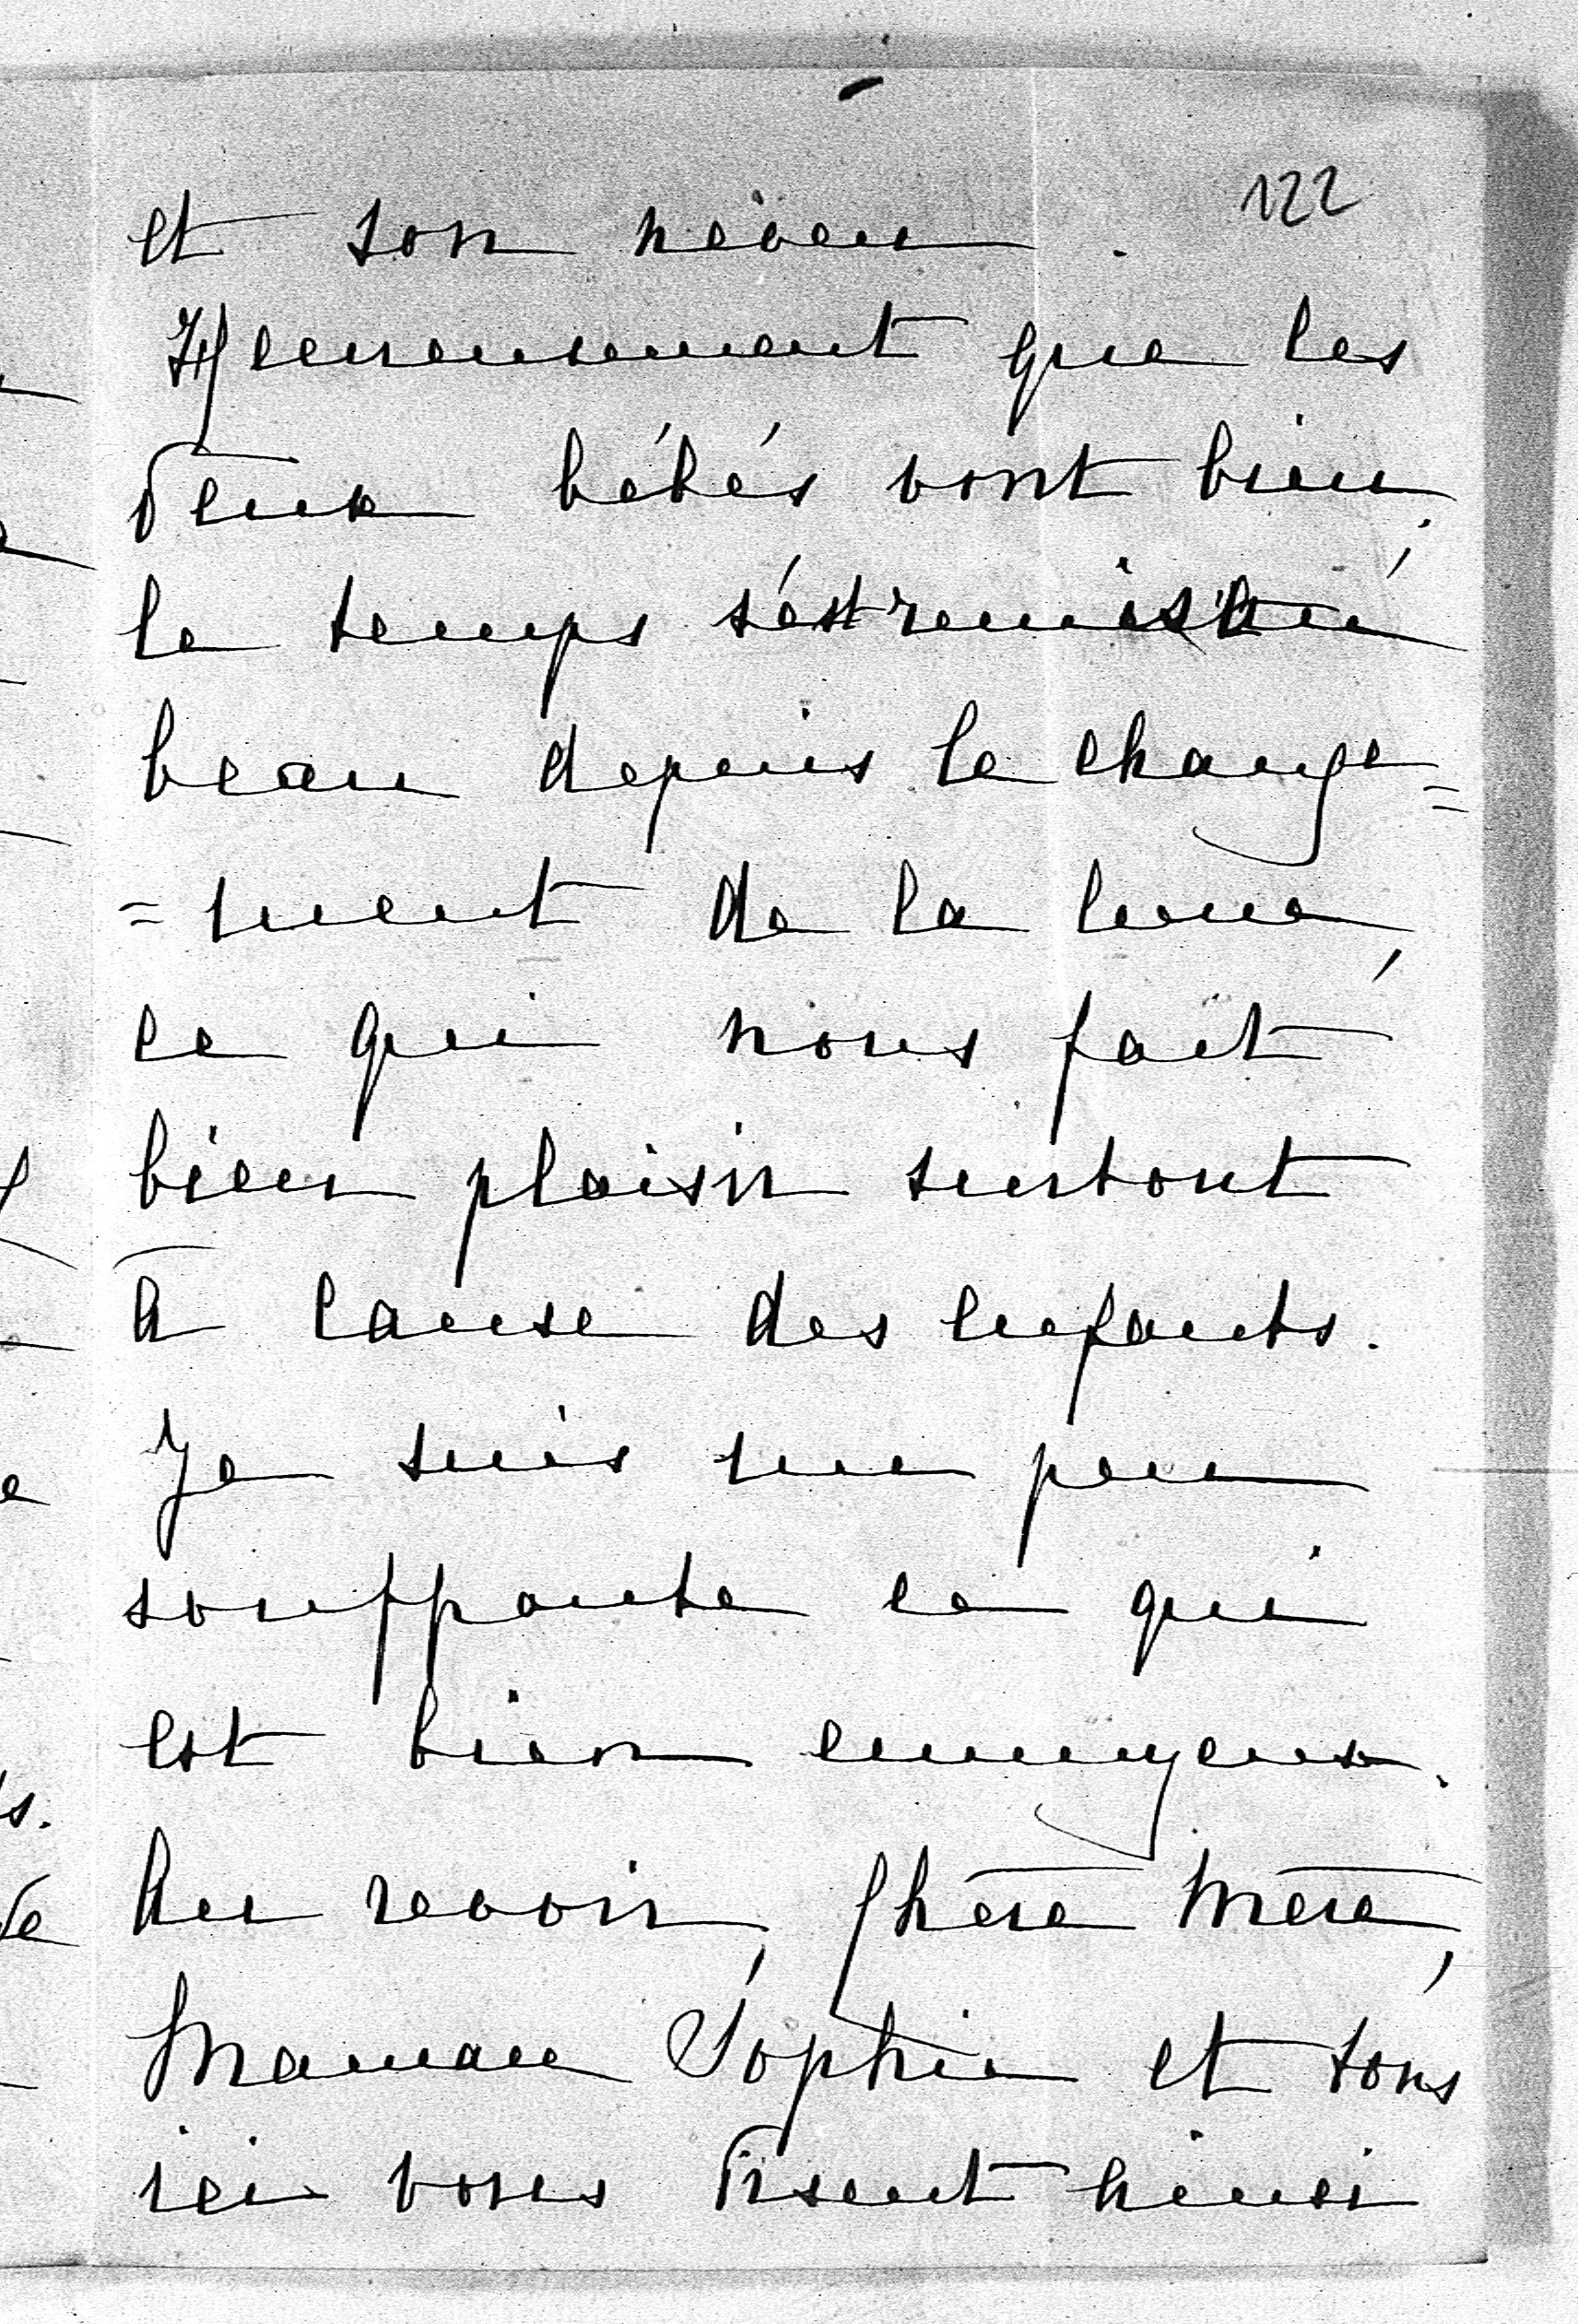 122
et son neveu.
Heureusement que les
deux bébés vont bien;
le temps s'est remis au
beau depuis le change=
=ment de la lune,
ce qui nous fait
bien plaisir surtout
à cause des enfants.
Je suis un peu
souffrante ce qui
est bien ennuyeux.
Au revoir, Chère Mère,
Maman Sophie et tous
ici vous disent ainsi